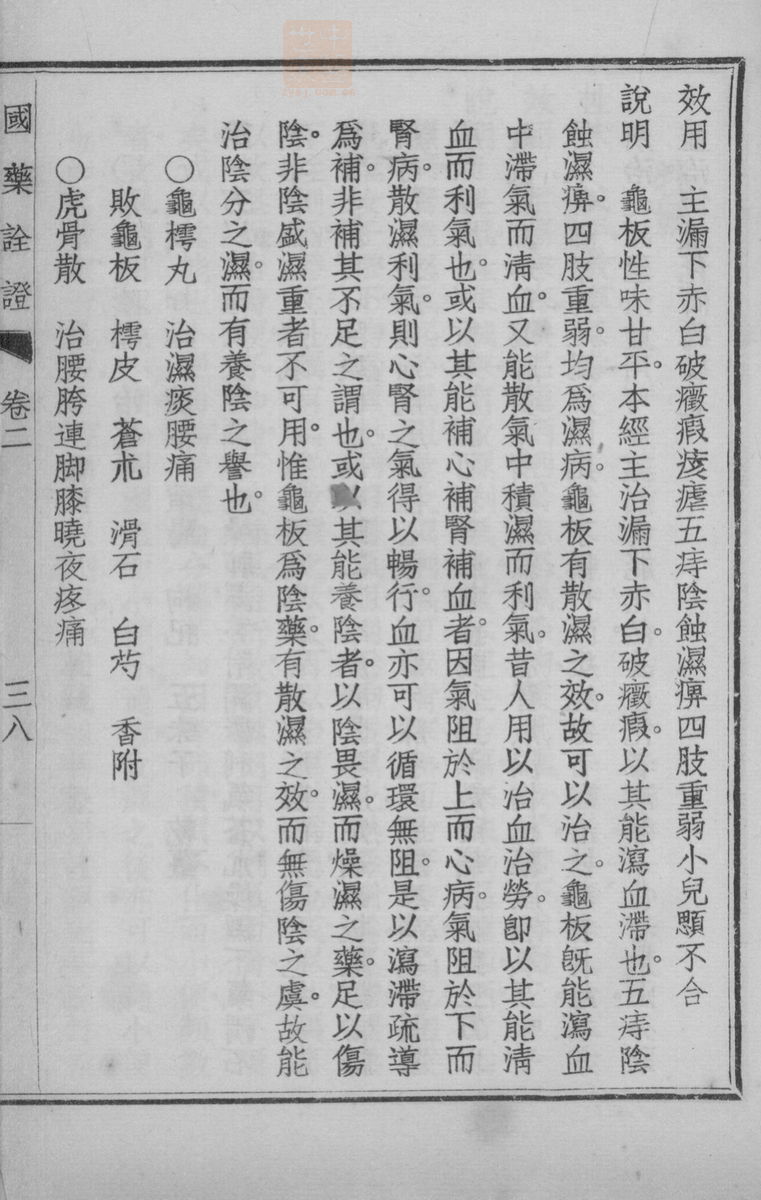 效用　主漏下赤白破癥瘕痎瘧五痔陰蝕濕痹四肢重弱小兒顖不合
說明　龜板性味甘平。本經主治漏下赤白。破癥瘕。以其能瀉血滯也。五痔陰
蝕濕痹。四肢重弱。均爲濕病。龜板有散濕之效。故可以治之。龜板旣能瀉血
中滯氣而淸血。又能散氣中積濕而利氣。昔人用以治血治勞。卽以其能淸
血而利氣也。或以其能補心補腎補血者。因氣阻於上而心病。氣阻於下而
腎病。散濕利氣。則心腎之氣得以暢行。血亦可以循環無阻。是以瀉滯疏導
爲補。非補其不足之謂也。或以其能養陰者。以陰畏濕。而燥濕之藥。足以傷
陰。非陰盛濕重者不可用。惟龜板爲陰藥。有散濕之效。而無傷陰之虞。故能
治陰分之濕。而有養陰之譽也。
〇龜樗丸　治濕痰腰痛
敗龜板　樗皮　蒼朮　滑石　白芍　香附
〇虎骨散　治腰胯連脚膝曉夜疼痛
國藥詮證　卷二　三八